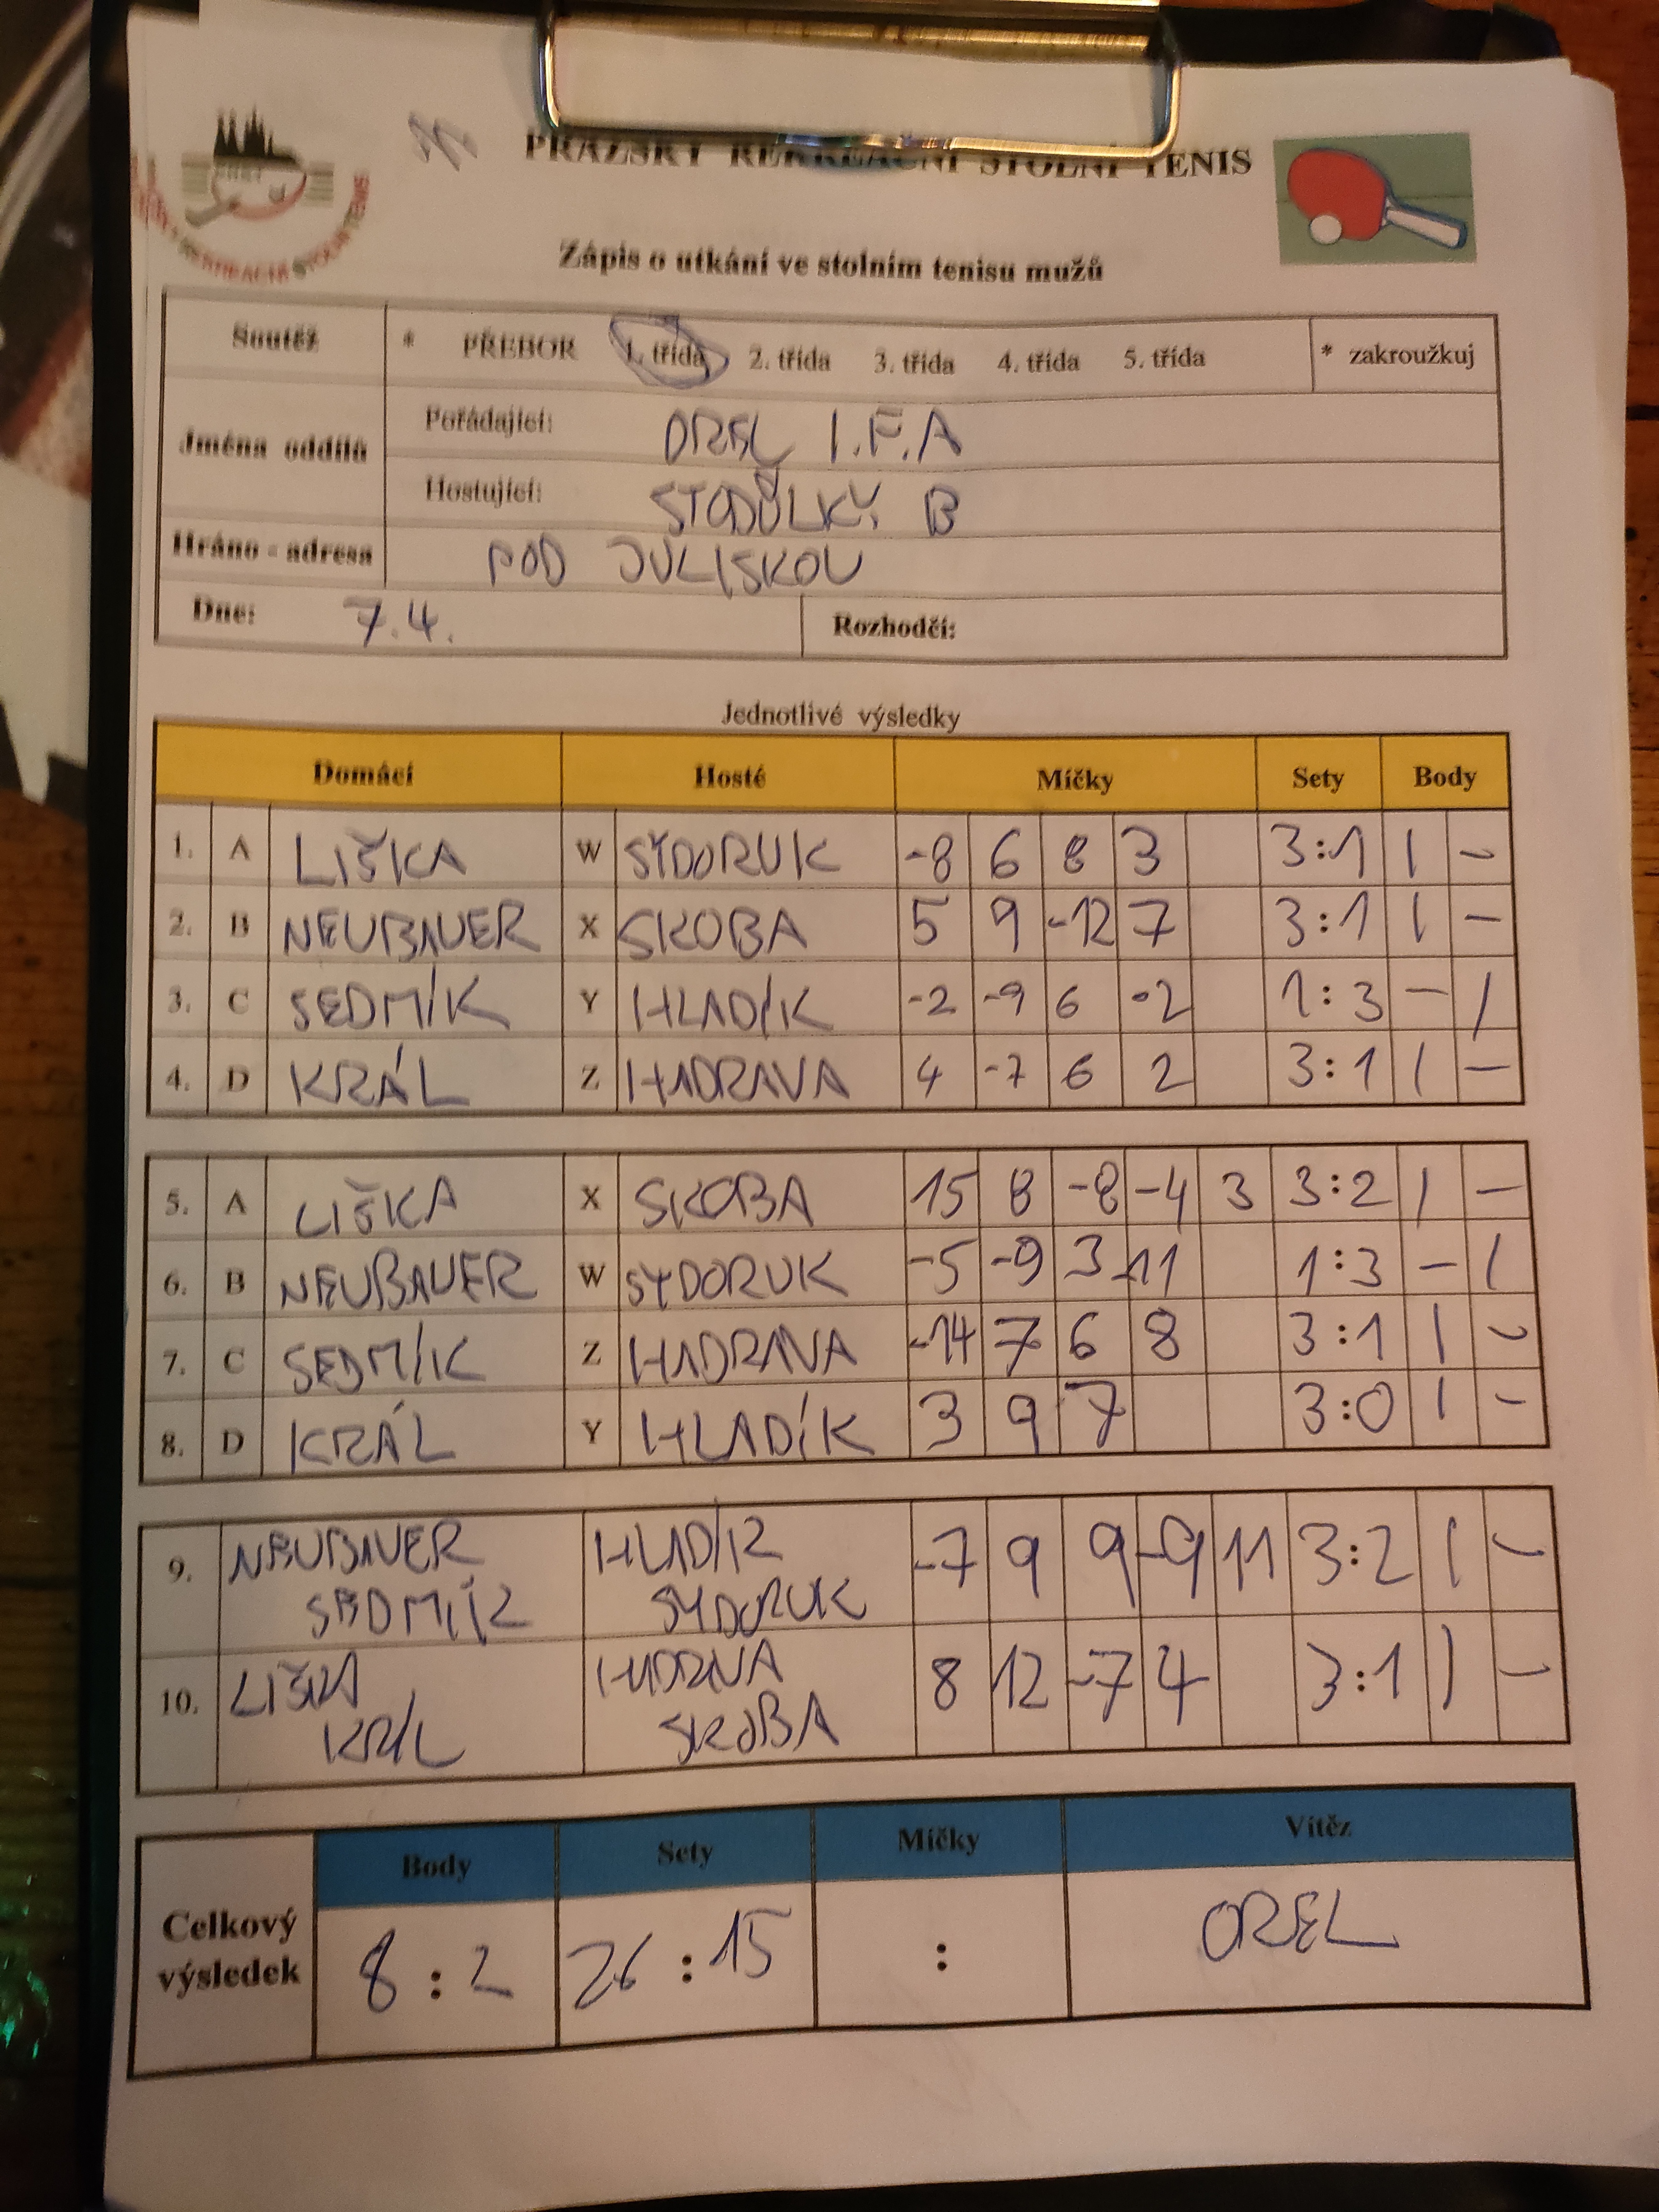 PRAŽSKÝ REKREAČNÍ STOLNÍ TENIS
Zápis o utkání ve stolním tenisu mužů
Soutěž * PŘEBOR 1. třída 2. třída 3. třída 4. třída 5. třída * zakroužkuj
Jména oddílů
Pořádající: OREL I.F.A
Hostující: STODŮLKY B
Hráno - adresa POD JULISKOU
Dne: 7.4. Rozhodčí:
Jednotlivé výsledky
Domácí Hosté Míčky Sety Body
1. A LIŠKA W SYDORUK -8 6 8 3 3:1 1 -
2. B NEUBAUER X SKOBA 5 9 -12 7 3:1 1 -
3. C SEDMÍK Y HLADÍK -2 -9 6 -2 1:3 - 1
4. D KRÁL Z HADRAVA 4 -7 6 2 3:1 1 -
5. A LIŠKA X SKOBA 15 8 -8 -4 3 3:2 1 -
6. B NEUBAUER W SYDORUK -5 -9 3 -11 1:3 - 1
7. C SEDMÍK Z HADRAVA -14 7 6 8 3:1 1 -
8. D KRÁL Y HLADÍK 3 9 7 3:0 1 -
9. NEUBAUER HLADÍK -7 9 9 -9 11 3:2 1 -
SEDMÍK SYDORUK
10. LIŠKA HADRAVA 8 12 -7 4 3:1 1 -
KRÁL SKOBA
Body Sety Míčky Vítěz
Celkový výsledek 8 : 2 26 : 15 : OREL